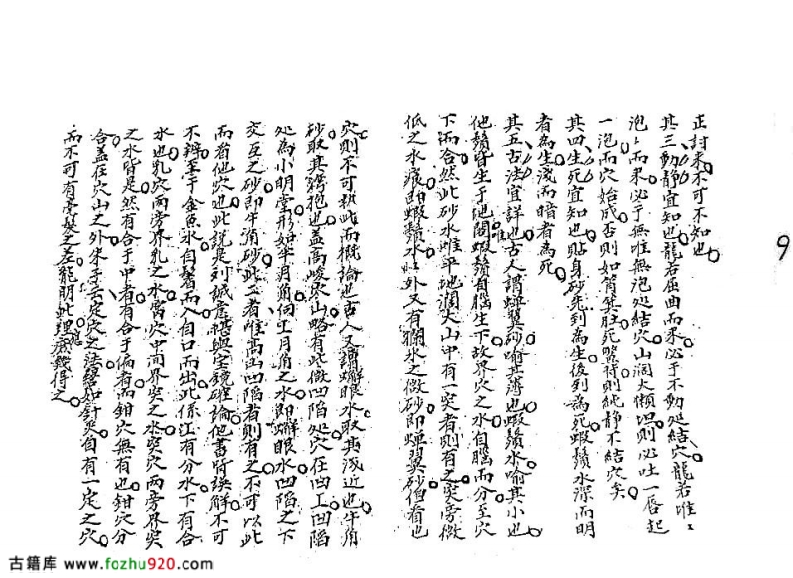 正討來不可不知也
其三動靜宜知也龍若屈曲而來必于不動處結穴龍若堆堆
泡泡而來必于無堆無泡處結穴山濶大懶坦則必吐一唇起
一泡而穴始成否則如筲箕肚死緊得則純靜不結穴矣
其四生死宜知也貼身砂先到為生後到為死蝦鬚水深而明
者為生淺而暗者為死
其五古法宜詳也古人謂蟬翼砂喻其薄也蝦鬚水喻其小也
他鬚皆生于地閣惟蝦鬚獨生腦下故界穴之水自腦而分至穴
下而合然此砂水惟平地濶大山中有一突者則有之突旁微
低之水痕即蝦鬚水此外又有攔水之微砂即蟬翼砂偕看也
穴則不可執此而概論也古人又謂蠏眼水取其淺近也牛角
砂取其彎抱也蓋高峻窩山略有些微凹陷處穴在凹工凹陷
處為小明堂形如半月角仰工月角之水即蠏眼水凹陷之下
交互之砂即牛角砂此二者惟高山凹陷者則有之不可以此
而看他穴也此說是劉誠意堪輿寶鏡確論他書皆誤解不可
不辨至于金魚水自鬐而入自口而出此係江有分水下有合
水也乳穴兩旁界乳之水窩穴中間界突之水突穴兩旁界突
之水皆是然有合于中者有合于偏者而鉗穴無有也鉗穴分
合蓋在穴山之外朱子云定穴之法譬如針灸自有一定之穴
而不可有毫髮之差能明此理庶幾得之
9
古籍库 www.fozhu920.com